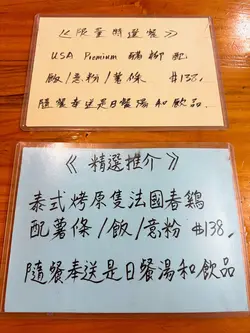 《限量特選餐》
USA Premium 鷄柳配
飯/意粉/薯條 $138.
隨餐奉送是日餐湯和飲品.
《精選推介》
泰式烤原隻法國春鷄
配薯條/飯/意粉 $138.
隨餐奉送是日餐湯和飲品